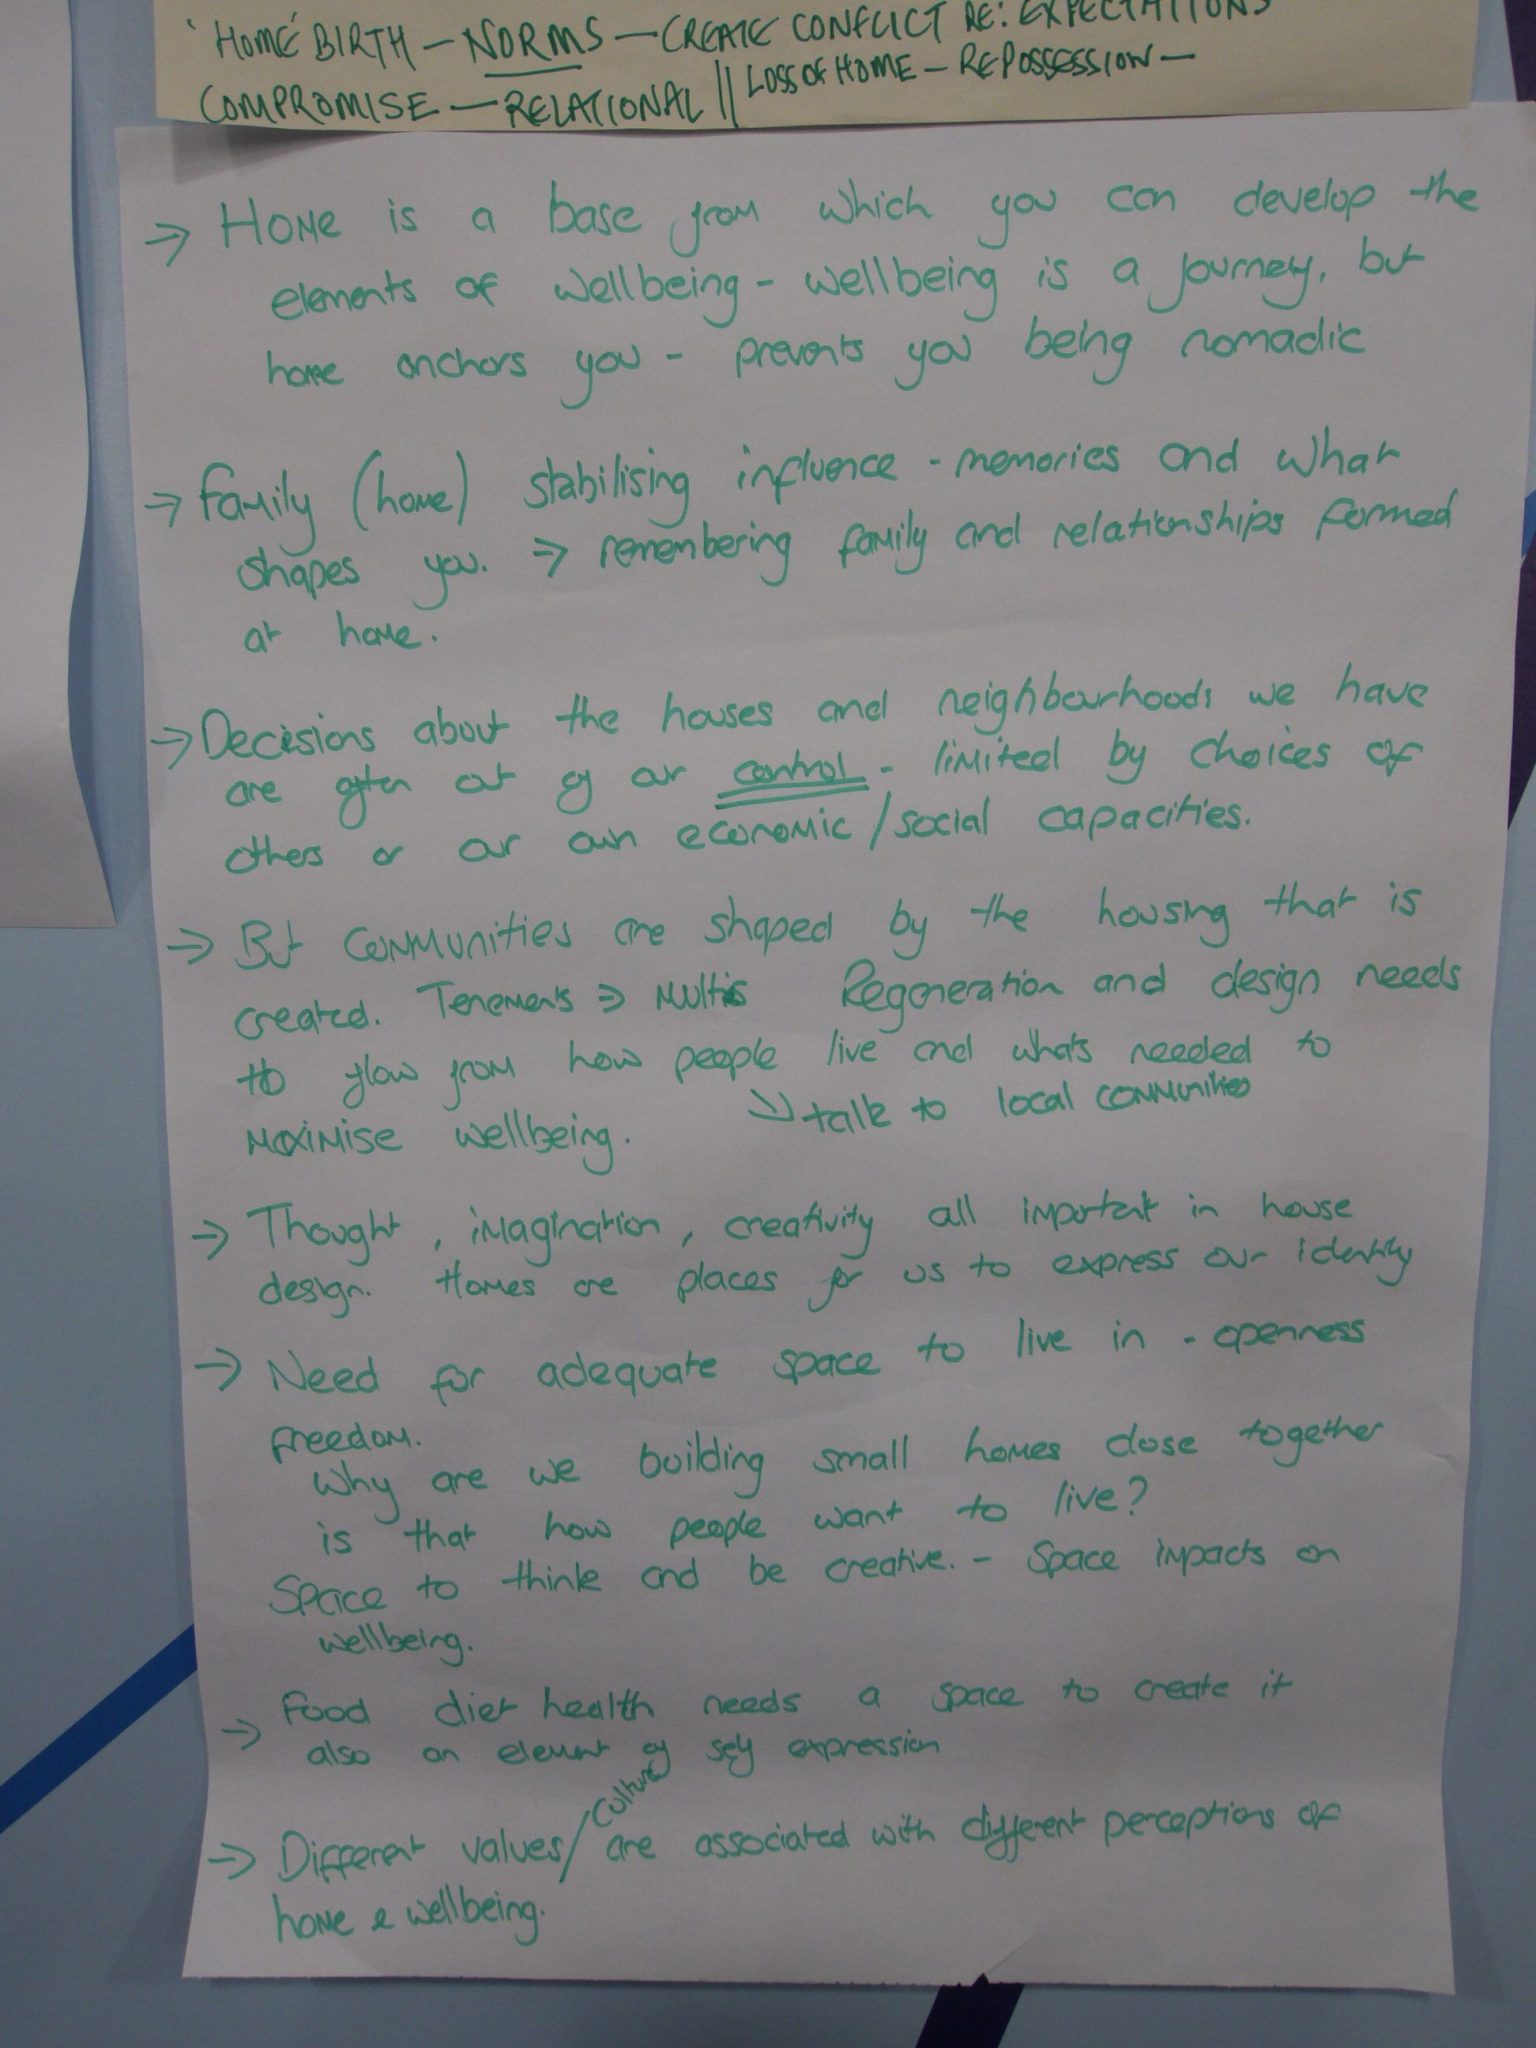 'HOME' BIRTH — NORMS — CREATE CONFLICT RE: EXPECTATIONS
COMPROMISE — RELATIONAL || LOSS OF HOME — REPOSSESSION —
→ Home is a base from which you can develop the
elements of wellbeing - wellbeing is a journey, but
home anchors you - prevents you being nomadic
→ family (home) stabilising influence - memories and what
shapes you. ⇒ remembering family and relationships formed
at home.
→ Decisions about the houses and neighbourhoods we have
are often out of our control - limited by choices of
others or our own economic/social capacities.
→ But communities are shaped by the housing that is
created. Tenements ⇒ Multis Regeneration and design needs
to flow from how people live and whats needed to
maximise wellbeing. → talk to local communities
→ Thought, imagination, creativity all important in house
design. Homes are places for us to express our identity
→ Need for adequate space to live in - openness
freedom.
Why are we building small homes close together
is that how people want to live?
Space to think and be creative. - Space impacts on
wellbeing.
→ Food diet health needs a space to create it
also an element of self expression
→ Different values/culture are associated with different perceptions of
home & wellbeing.